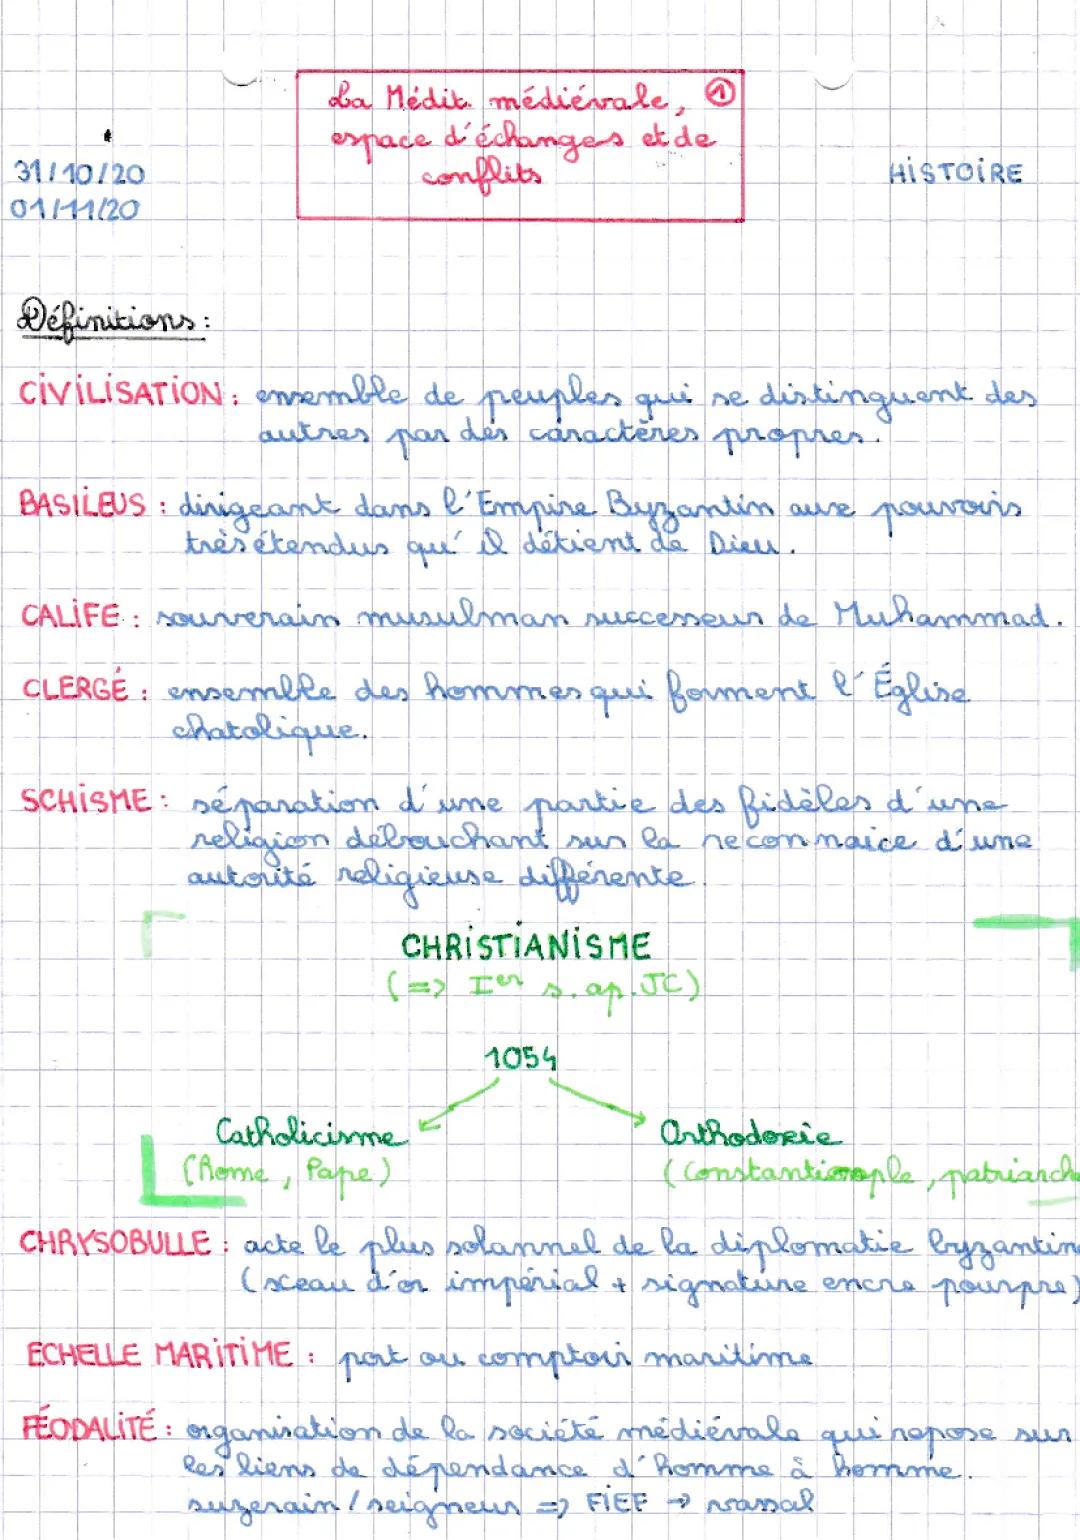 La Médit. médiévale, ①
espace d'échanges et de
conflits
31/10/20
01/11/20
HISTOIRE
Définitions :
CIVILISATION : ensemble de peuples qui se distinguent des
autres par des caractères propres.
BASILEUS : dirigeant dans l'Empire Byzantin aux pouvoirs
très étendus qu'il détient de Dieu.
CALIFE : souverain musulman successeur de Muhammad.
CLERGÉ : ensemble des hommes qui forment l'Église
chatolique.
SCHISME : séparation d'une partie des fidèles d'une
religion débouchant sur la reconnaice d'une
autorité religieuse différente.
CHRISTIANISME
(=> Ier s. ap. JC)
1054
Catholicisme
(Rome, Pape)
Orthodoxie
(Constantinople, patriarche
CHRYSOBULLE : acte le plus solannel de la diplomatie byzantine
(sceau d'or impérial + signature encre pourpre)
ECHELLE MARITIME : port ou comptoir maritime
FÉODALITÉ : organisation de la société médiévale qui repose sur
les liens de dépendance d'homme à homme.
suzerain / seigneur => FIEF → vassal